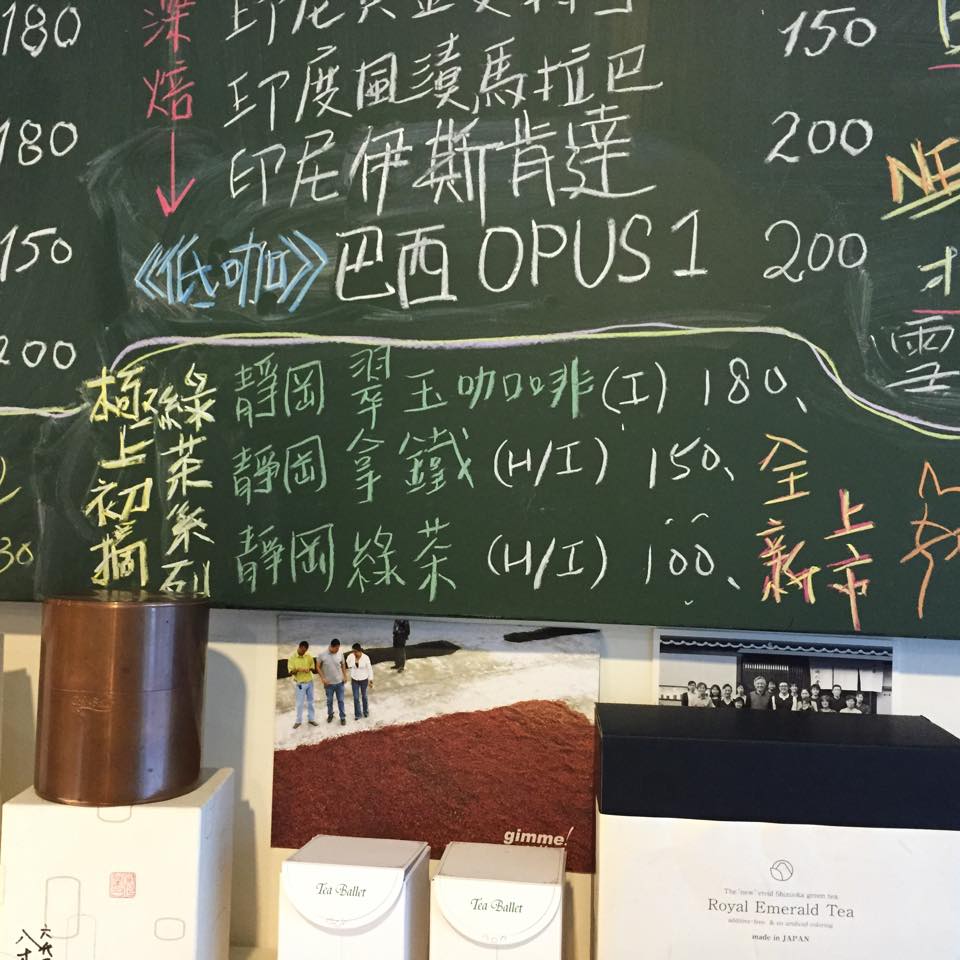 180
180
150
200
深焙
印度風漬馬拉巴
印尼伊斯肯達
《低咖》巴西 OPUS 1
150
200
200
極上初摘
綠茶系列
靜岡 翠玉咖啡 (I) 180、
靜岡 拿鐵 (H/I) 150、
靜岡 綠茶 (H/I) 100、
全新上市
30
gimme!
Tea Ballet
Tea Ballet
The "new" vivid Shizuoka green tea
Royal Emerald Tea
additive-free & no artificial coloring
made in JAPAN